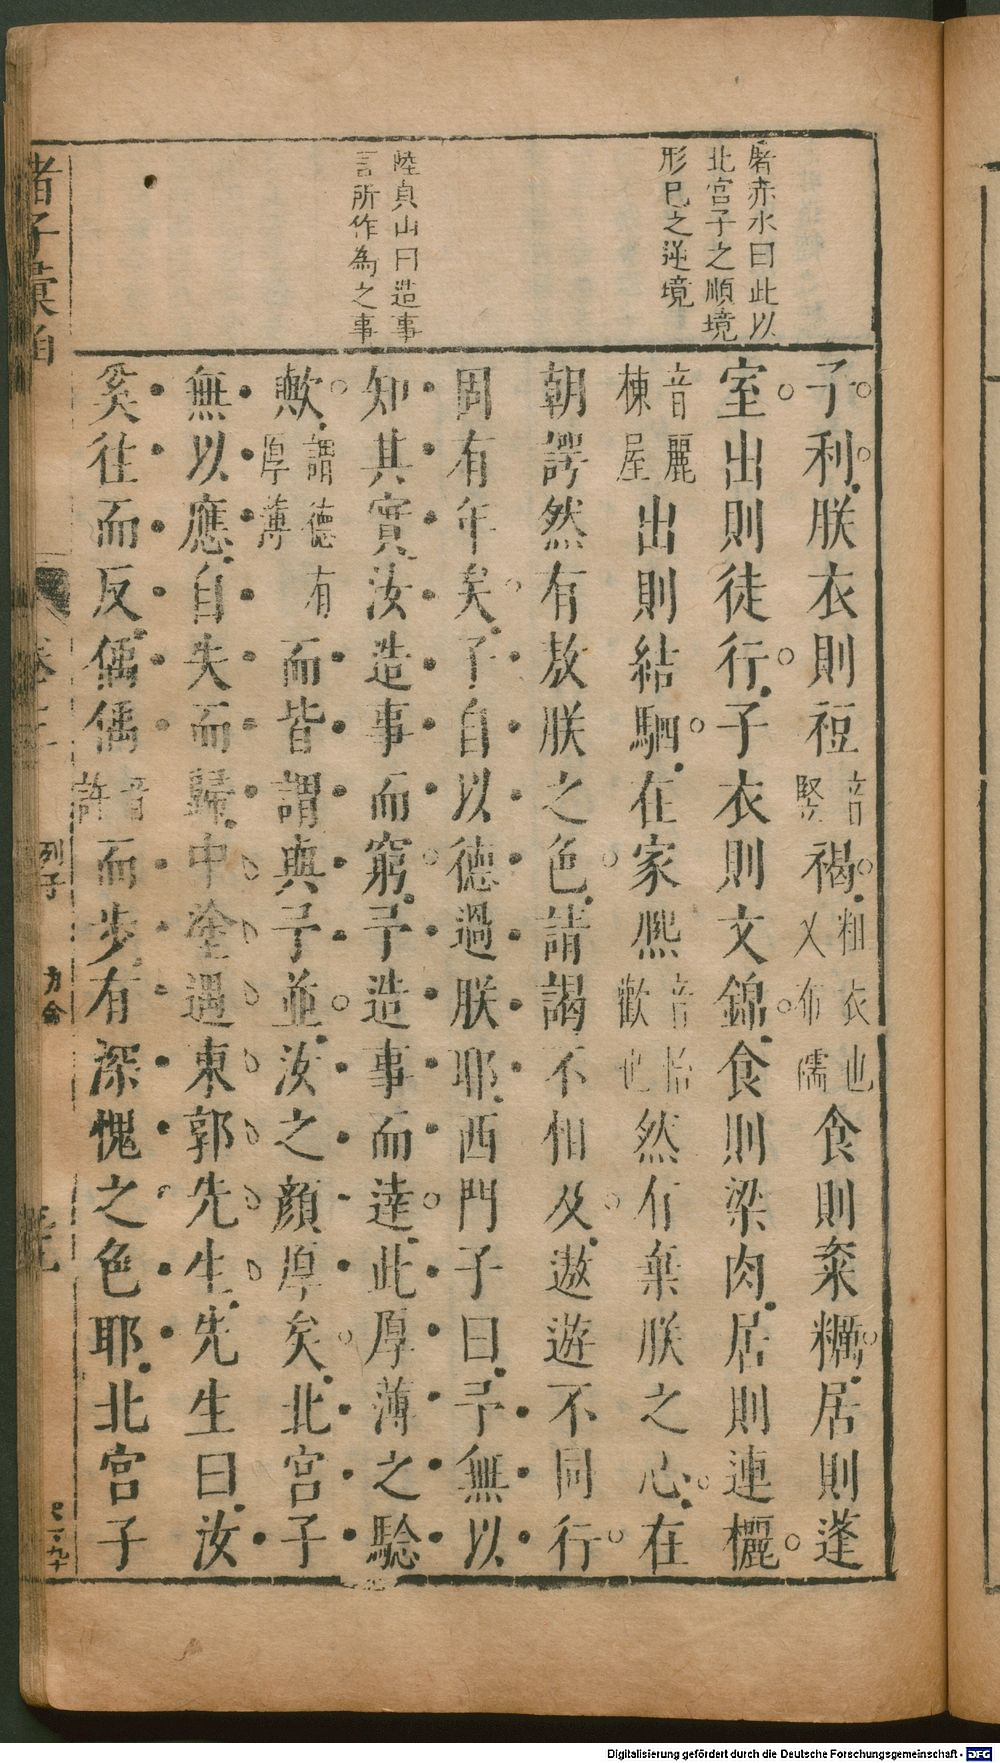 屠赤水曰此以
北宮子之順境
形巳之逆境
陸貞山曰造事
言所作為之事
子利朕衣則裋音豎褐粗衣也又布襦食則粢糲居則蓬
室出則徒行子衣則文錦食則梁肉居則連欐
音麗棟屋出則結駟在家熈音怡歡也然有棄朕之心在
朝諤然有敖朕之色請謁不相及遨遊不同行
固有年矣子自以德過朕耶西門子曰予無以
知其實汝造事而窮予造事而達此厚薄之驗
歟謂德有厚薄而皆謂與予並汝之顏厚矣北宮子
無以應自失而歸中塗遇東郭先生先生曰汝
奚往而反偊偊音許而步有深愧之色耶北宮子
諸子彙
列子
力命
Digitalisierung gefördert durch die Deutsche Forschungsgemeinschaft - DFG